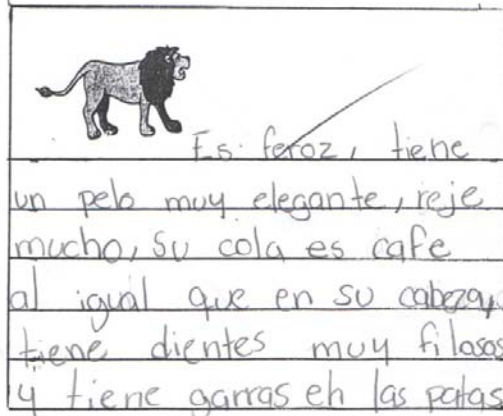 Es feroz, tiene
un pelo muy elegante, reje
mucho, su cola es cafe
al igual que en su cabeza,
tiene dientes muy filosos
y tiene garras en las patas